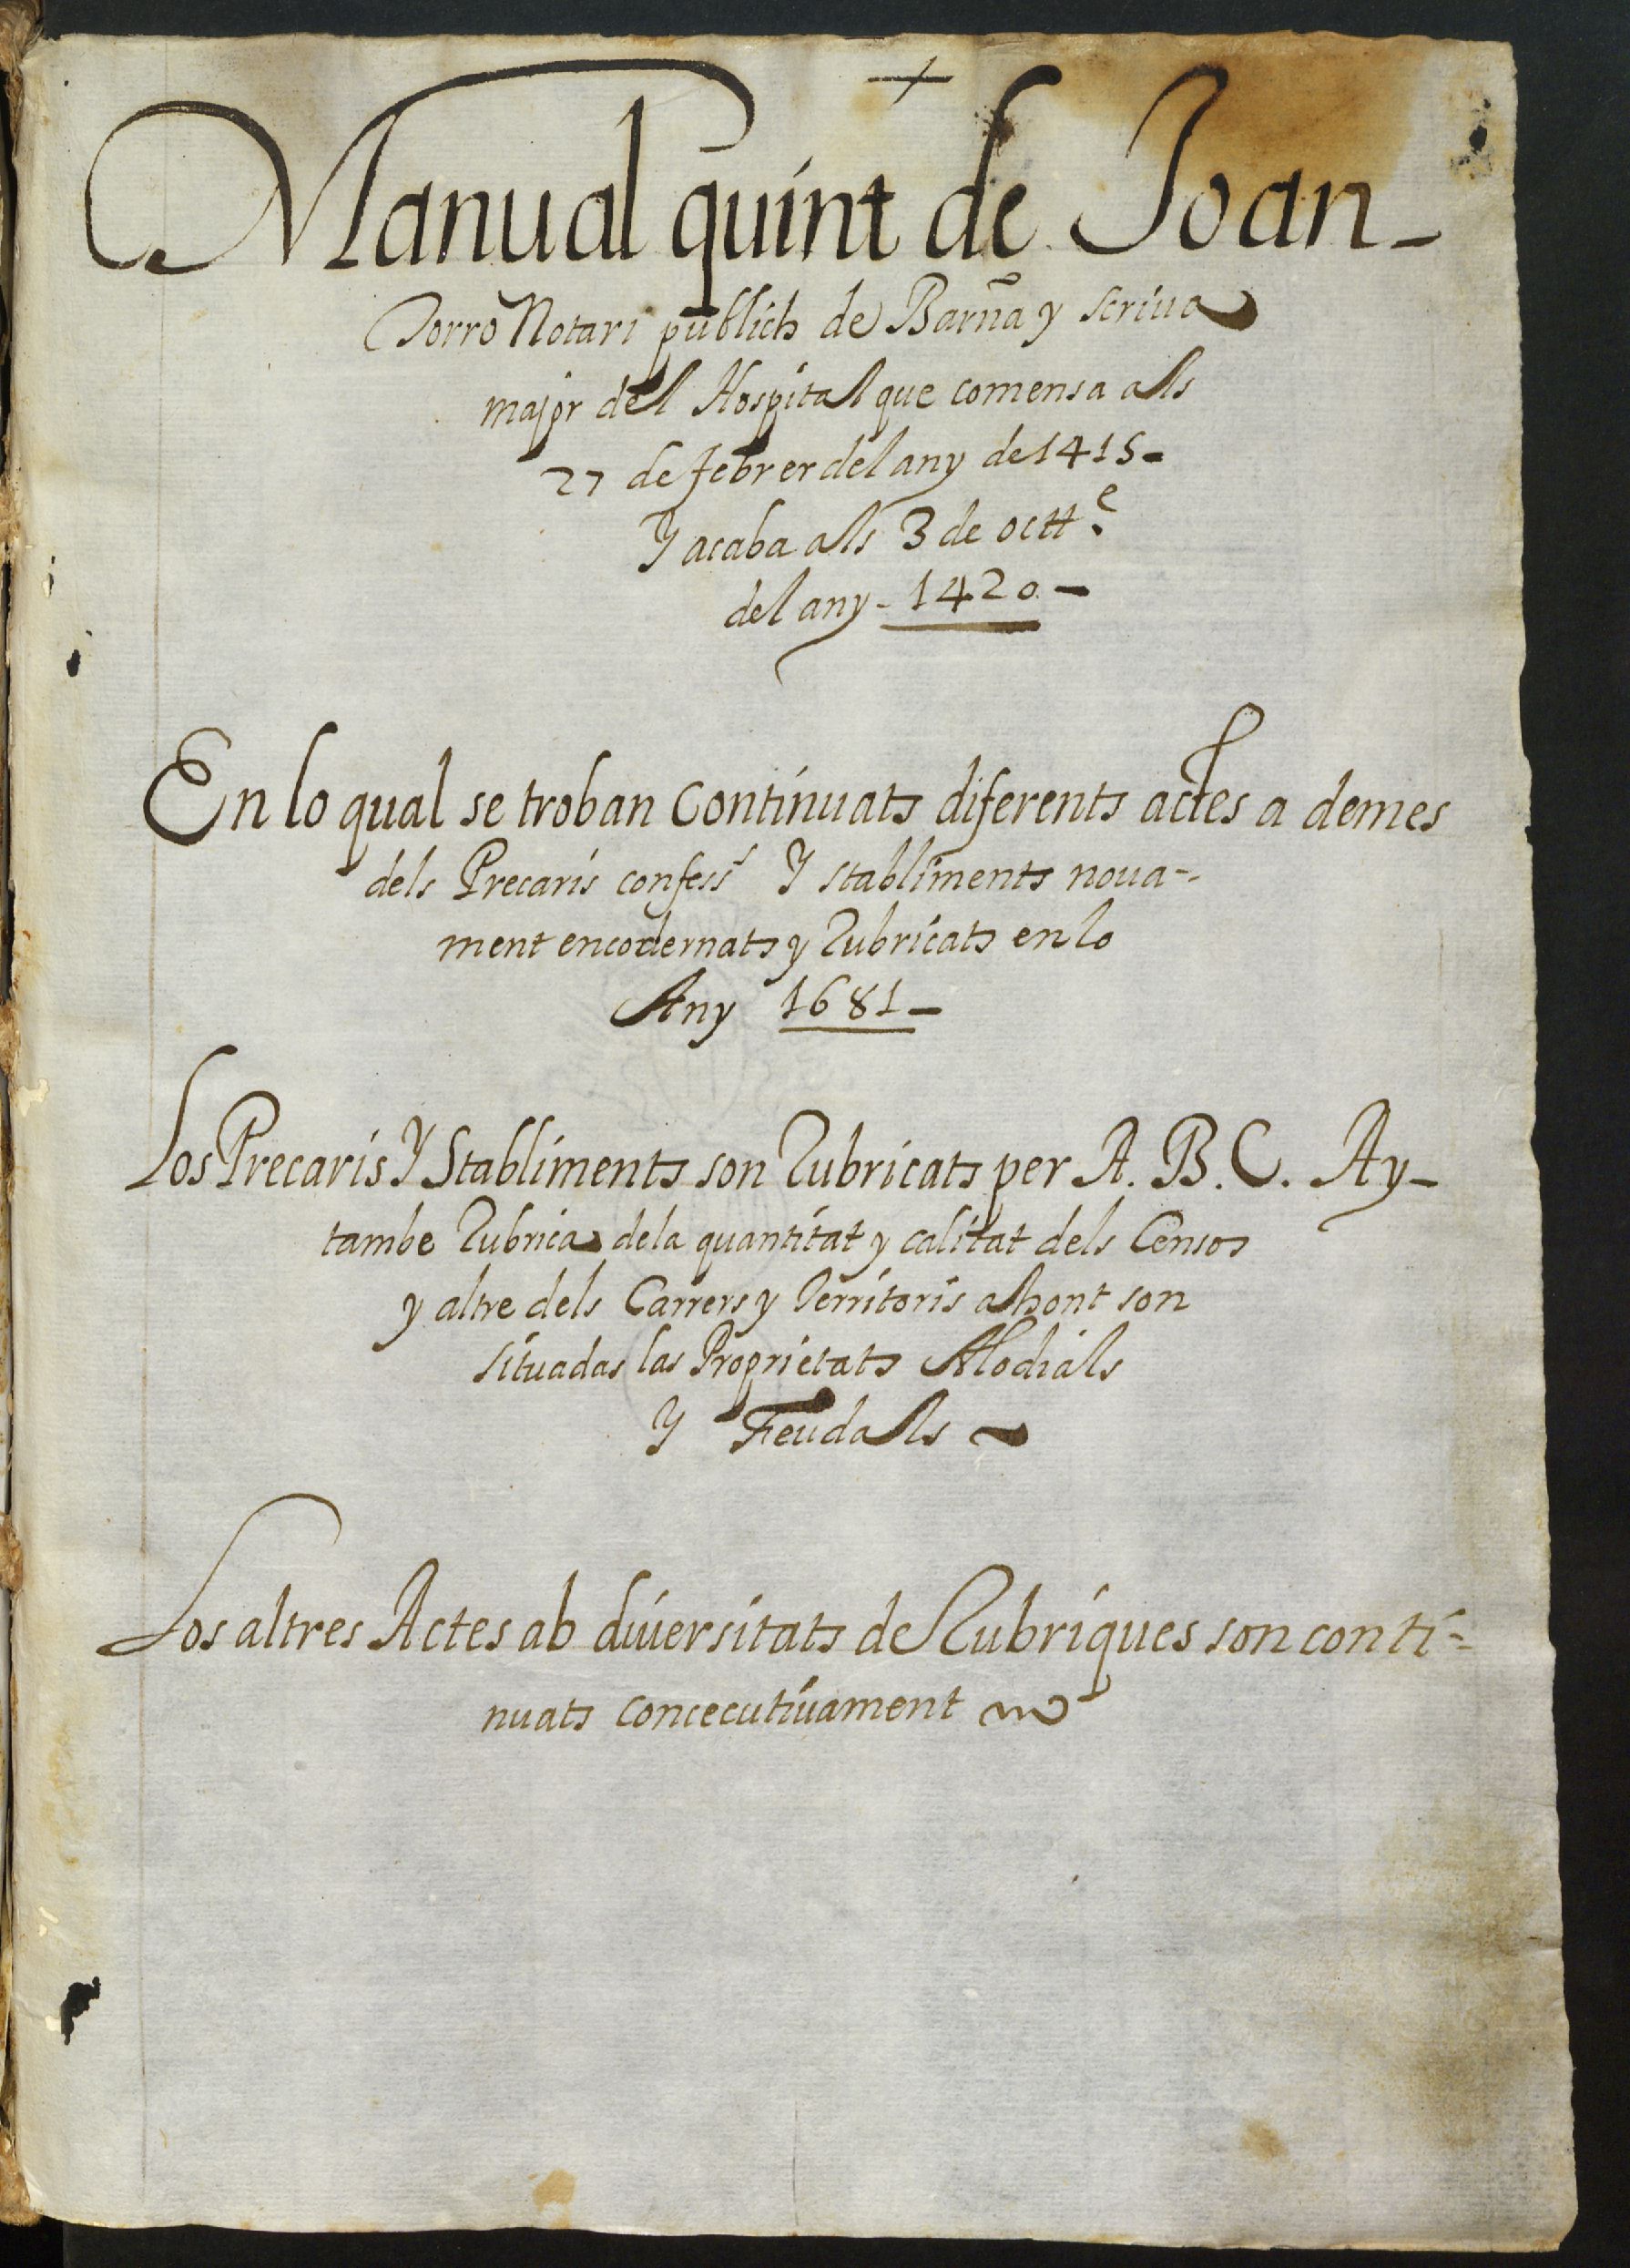 +
Manual quint de Joan-
Torro Notari publich de Barña y scriua
major del Hospital que comensa als
27 de febrer del any de 1415-
Y acaba als 3 de octt.e
del any - 1420 -
En lo qual se troban Continuats diferents actes a demes
dels Precaris confess.s Y stabliments noua-
ment encodernats y Rubricats en lo
Any 1681-
Los Precaris Y Stabliments son Rubricats per A. B. C. Ay-
tambe Rubrica de la quantitat y calitat dels Censos
y altre dels Carrers y Territoris ahont son
situadas las Proprietats Alodials
Y Feudals
Los altres Actes ab diuersitats de Rubriques son conti-
nuats concecutiuament